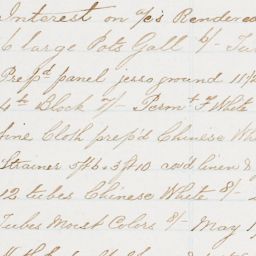 Interest on a/c's Rendered
6 large Pots Gall 6/-
Prep'd panel jesso ground 11/2
4th Block 7/- Perm't F White
fine Cloth prep'd Chinese Wh
Strainer 5ft6 . 3ft10 cov'd linen &
12 tubes Chinese White 8/-
Tubes Moist Colors 8/- May 1